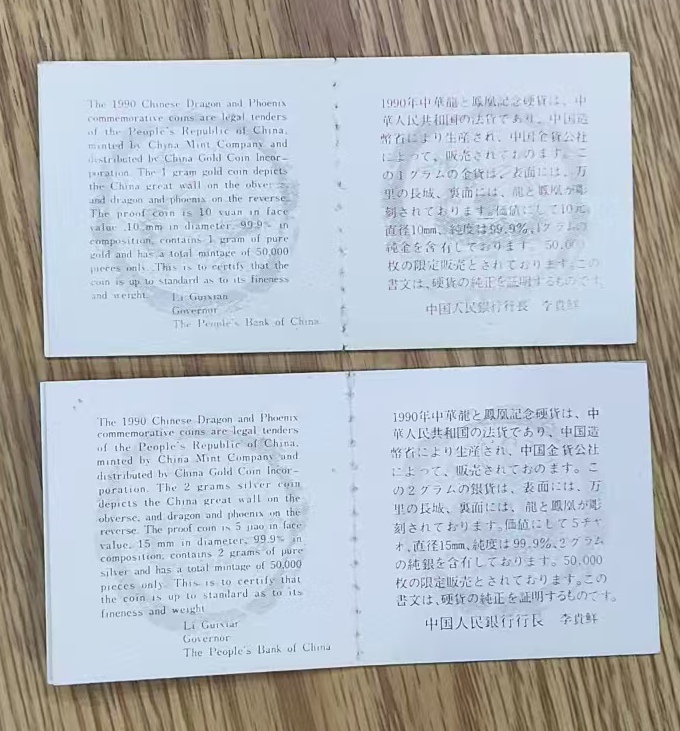 The 1990 Chinese Dragon and Phoenix
commemorative coins are legal tenders
of the People's Republic of China,
minted by China Mint Company and
distributed by China Gold Coin Incor-
poration. The 1 gram gold coin depicts
the China great wall on the obverse,
and dragon and phoenix on the reverse.
The proof coin is 10 yuan in face
value, 10 mm in diameter, 99.9% in
composition, contains 1 gram of pure
gold and has a total mintage of 50,000
pieces only. This is to certify that the
coin is up to standard as to its fineness
and weight.
Li Guixian
Governor
The People's Bank of China
1990年中華龍と鳳凰記念硬貨は、中
華人民共和国の法貨であり、中国造
幣省により生産され、中国金貨公社
によって、販売されておのます。こ
の1グラムの金貨は、表面には、万
里の長城、裏面には、龍と鳳凰が彫
刻されております。価値にして10元,
直径10mm、純度は99.9%、1グラムの
純金を含有しております。50,000
枚の限定販売とされております。この
書文は、硬貨の純正を証明するものです。
中国人民銀行行長 李貴鮮
The 1990 Chinese Dragon and Phoenix
commemorative coins are legal tenders
of the People's Republic of China,
minted by China Mint Company and
distributed by China Gold Coin Incor-
poration. The 2 grams silver coin
depicts the China great wall on the
obverse, and dragon and phoenix on the
reverse. The proof coin is 5 jiao in face
value, 15 mm in diameter, 99.9% in
composition, contains 2 grams of pure
silver and has a total mintage of 50,000
pieces only. This is to certify that
the coin is up to standard as to its
fineness and weight
Li Guixiar
Governor
The People's Bank of China
1990年中華龍と鳳凰記念硬貨は、中
華人民共和国の法貨であり、中国造
幣省により生産され、中国金貨公社
によって、販売されておのます。こ
の2グラムの銀貨は、表面には、万
里の長城、裏面には、龍と鳳凰が彫
刻されております。価値にして5チャ
オ,直径15mm、純度は99.9%、2グラム
の純銀を含有しております。50,000
枚の限定販売とされております。この
書文は、硬貨の純正を証明するものです。
中国人民銀行行長 李貴鮮